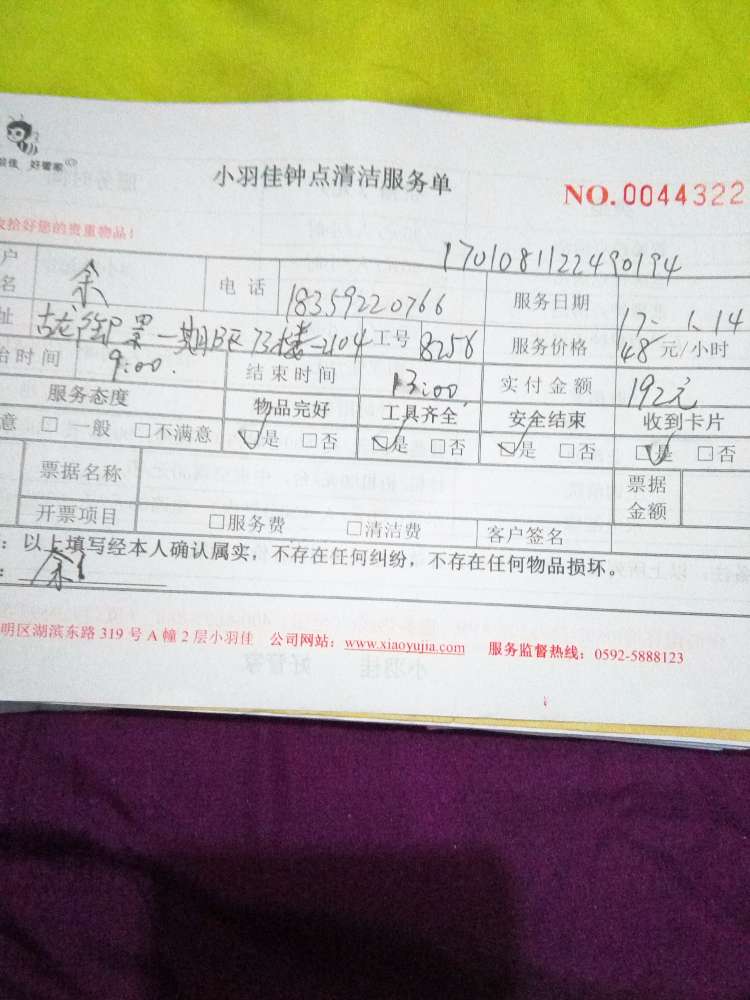 好管家
小羽佳钟点清洁服务单
NO.0044322
收拾好您的贵重物品!
1701081122490194
户名 余 电话 18359220766 服务日期 17.1.14
址 古龙御景一期 73楼-2104 工号 8256 服务价格 48元/小时
始时间 9:00. 结束时间 13:00 实付金额 192元
服务态度 物品完好 工具齐全 安全结束 收到卡片
意 □一般 □不满意 ☑是 □否 ☑是 □否 ☑是 □否 ☑是 □否
票据名称 票据金额
开票项目 □服务费 □清洁费 客户签名
: 以上填写经本人确认属实,不存在任何纠纷,不存在任何物品损坏。
: 余
明区湖滨东路 319 号 A 幢 2 层小羽佳 公司网站: www.xiaoyujia.com 服务监督热线: 0592-5888123